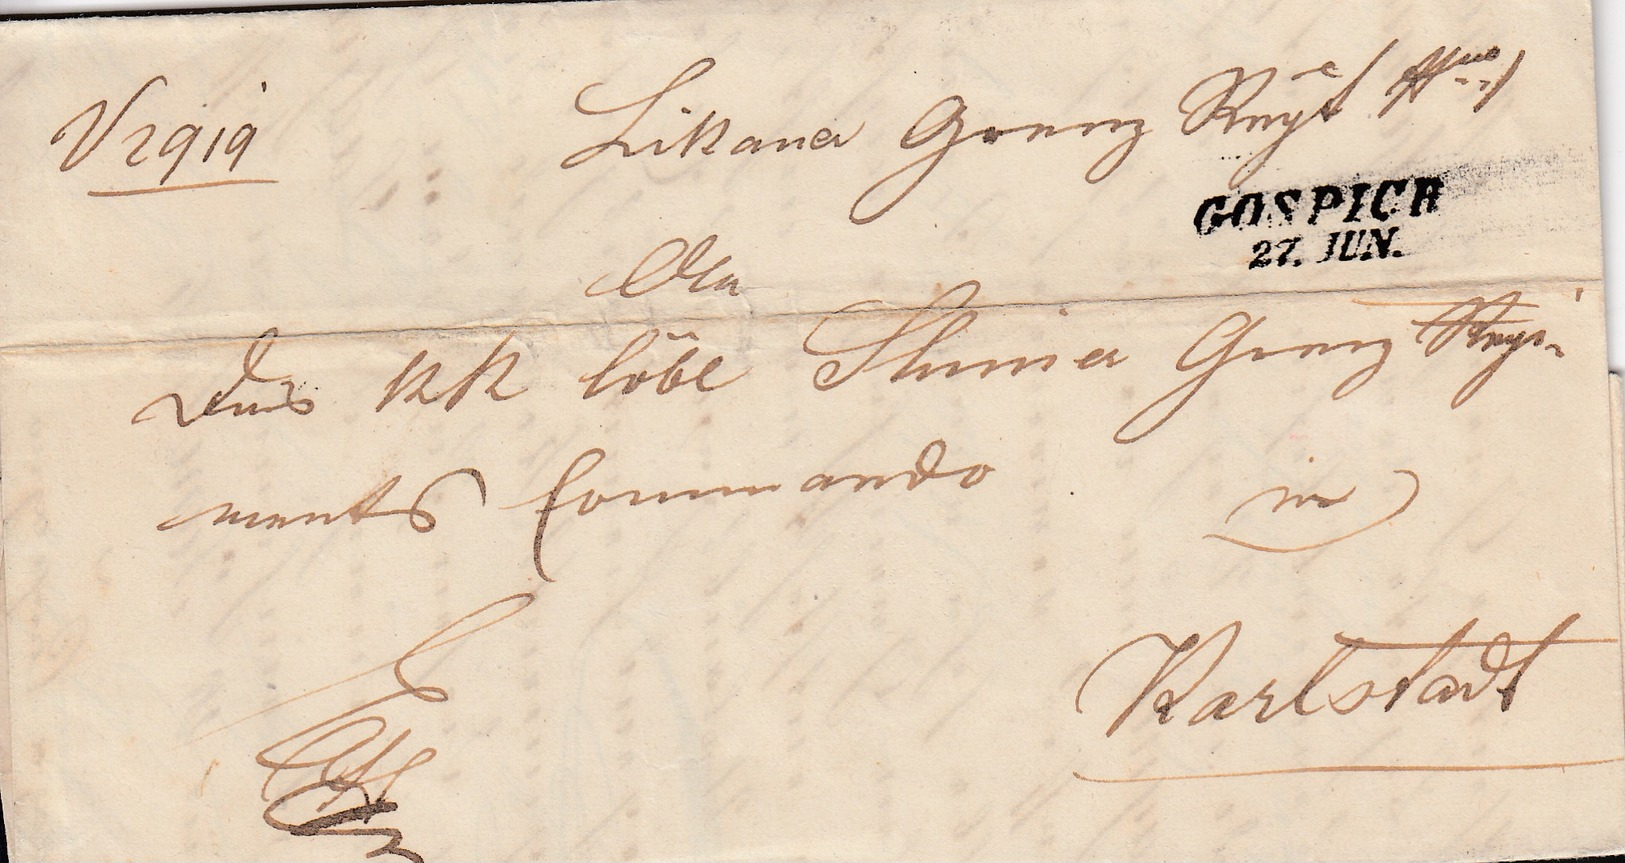 V 2919 Likaner Grenz Regt
GOSPICH
27. JUN.
An
Das kk löbl Sluiner Grenz Regi-
ments Commando in
Karlstadt